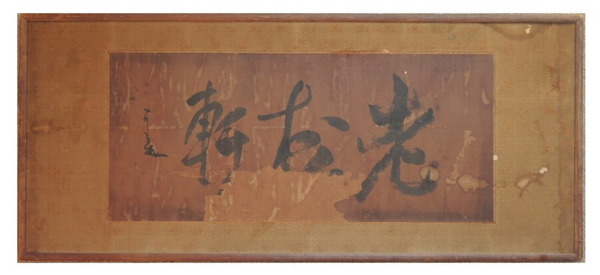 老松軒